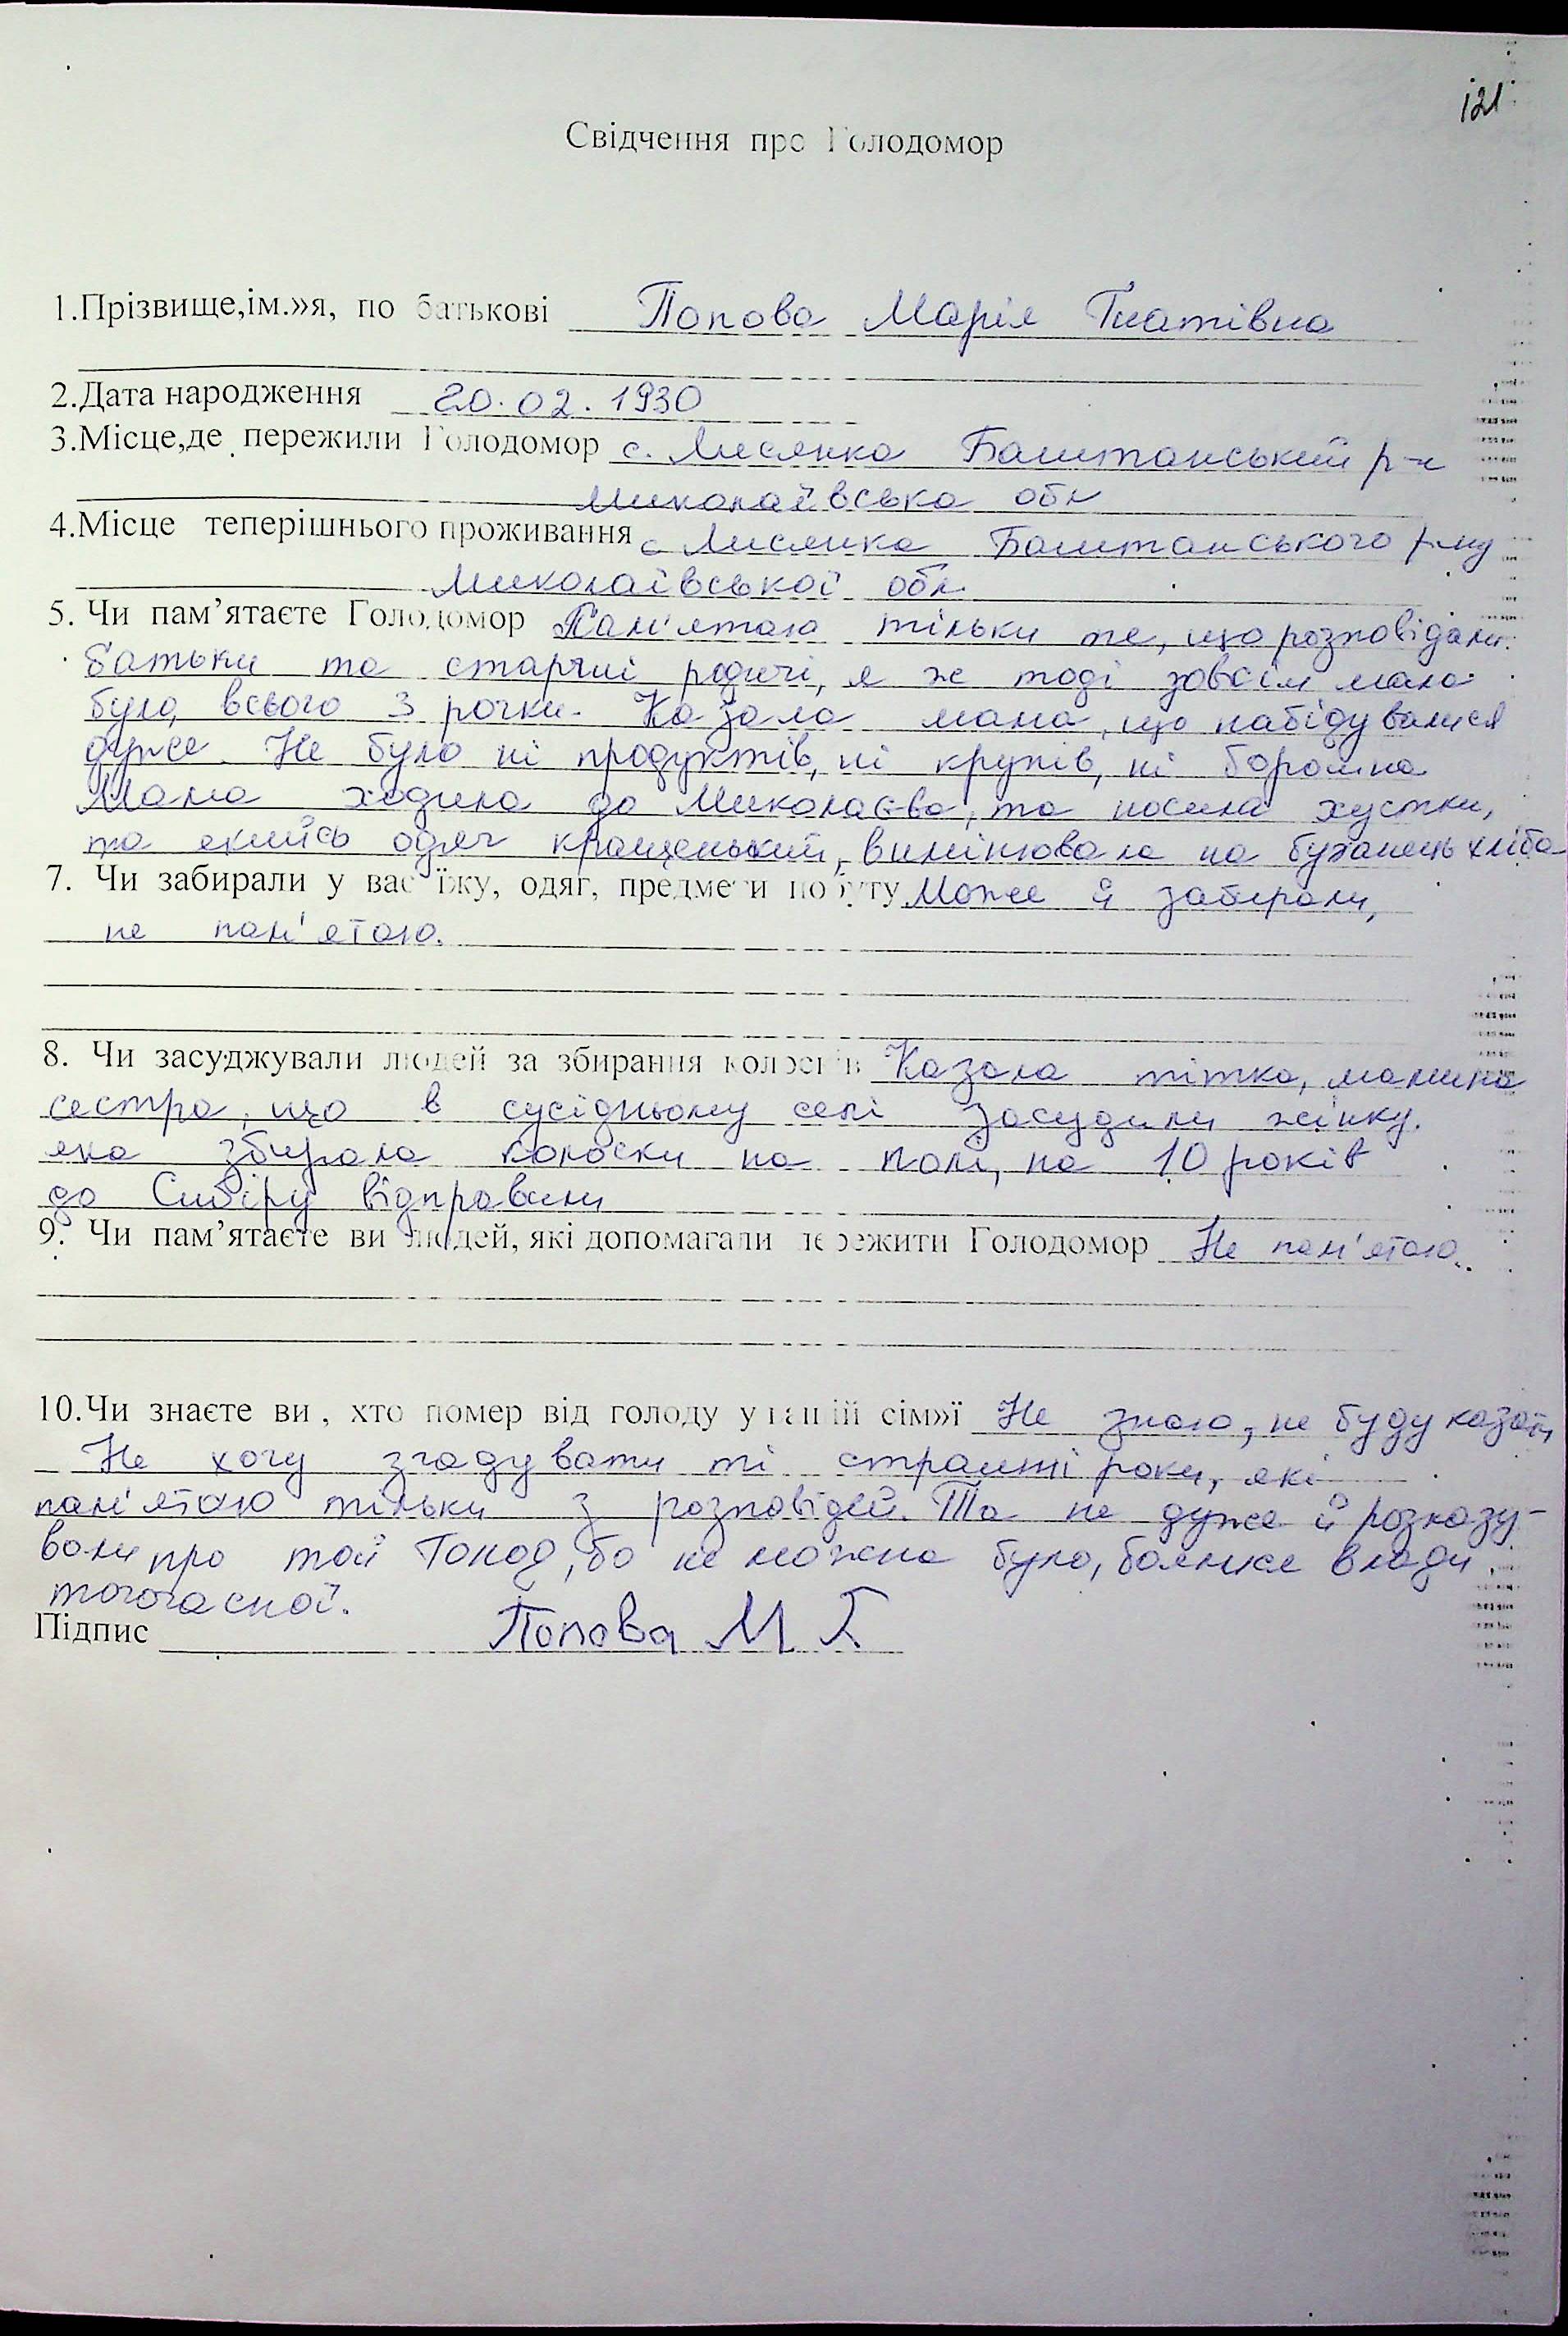 121
Свідчення про Голодомор
1.Прізвище,ім.»я, по батькові Попова Марія Гнатівна
2.Дата народження 20.02.1930
3.Місце,де пережили Голодомор с. Лисянка Баштанський р-н
Миколаївська обл
4.Місце теперішнього проживання с Лисянка Баштанського р-ну
Миколаївської обл.
5. Чи пам’ятаєте Голодомор Пам'ятаю тільки те, що розповідали
батьки та старші родичі, я ж тоді зовсім мала
була, всього 3 рочки. Казала мама, що набідувалися
дуже. Не було ні продуктів, ні крупів, ні борошна
Мама ходила до Миколаєва, та носила хустки,
та якийсь одяг кращенький, вимінювала на буханець хліба
7. Чи забирали у вас їжу, одяг, предмети побуту Може й забирали,
не пам'ятаю.
8. Чи засуджували людей за збирання колосків Казала тітка, мамина
сестра, що в сусідньому селі засудили жінку.
яка збирала колоски на полі, на 10 років
до Сибіру відправили
9. Чи пам’ятаєте ви людей, які допомагали пережити Голодомор Не пам'ятаю.
10.Чи знаєте ви , хто помер від голоду у вашій сім»ї Не знаю, не буду казати
Не хочу згадувати ті страшні роки, які
пам'ятаю тільки з розповідей. Та не дуже й розказу-
вали про той Голод, бо не можна було, боялися влади
тогочасної.
Підпис Попова М Г